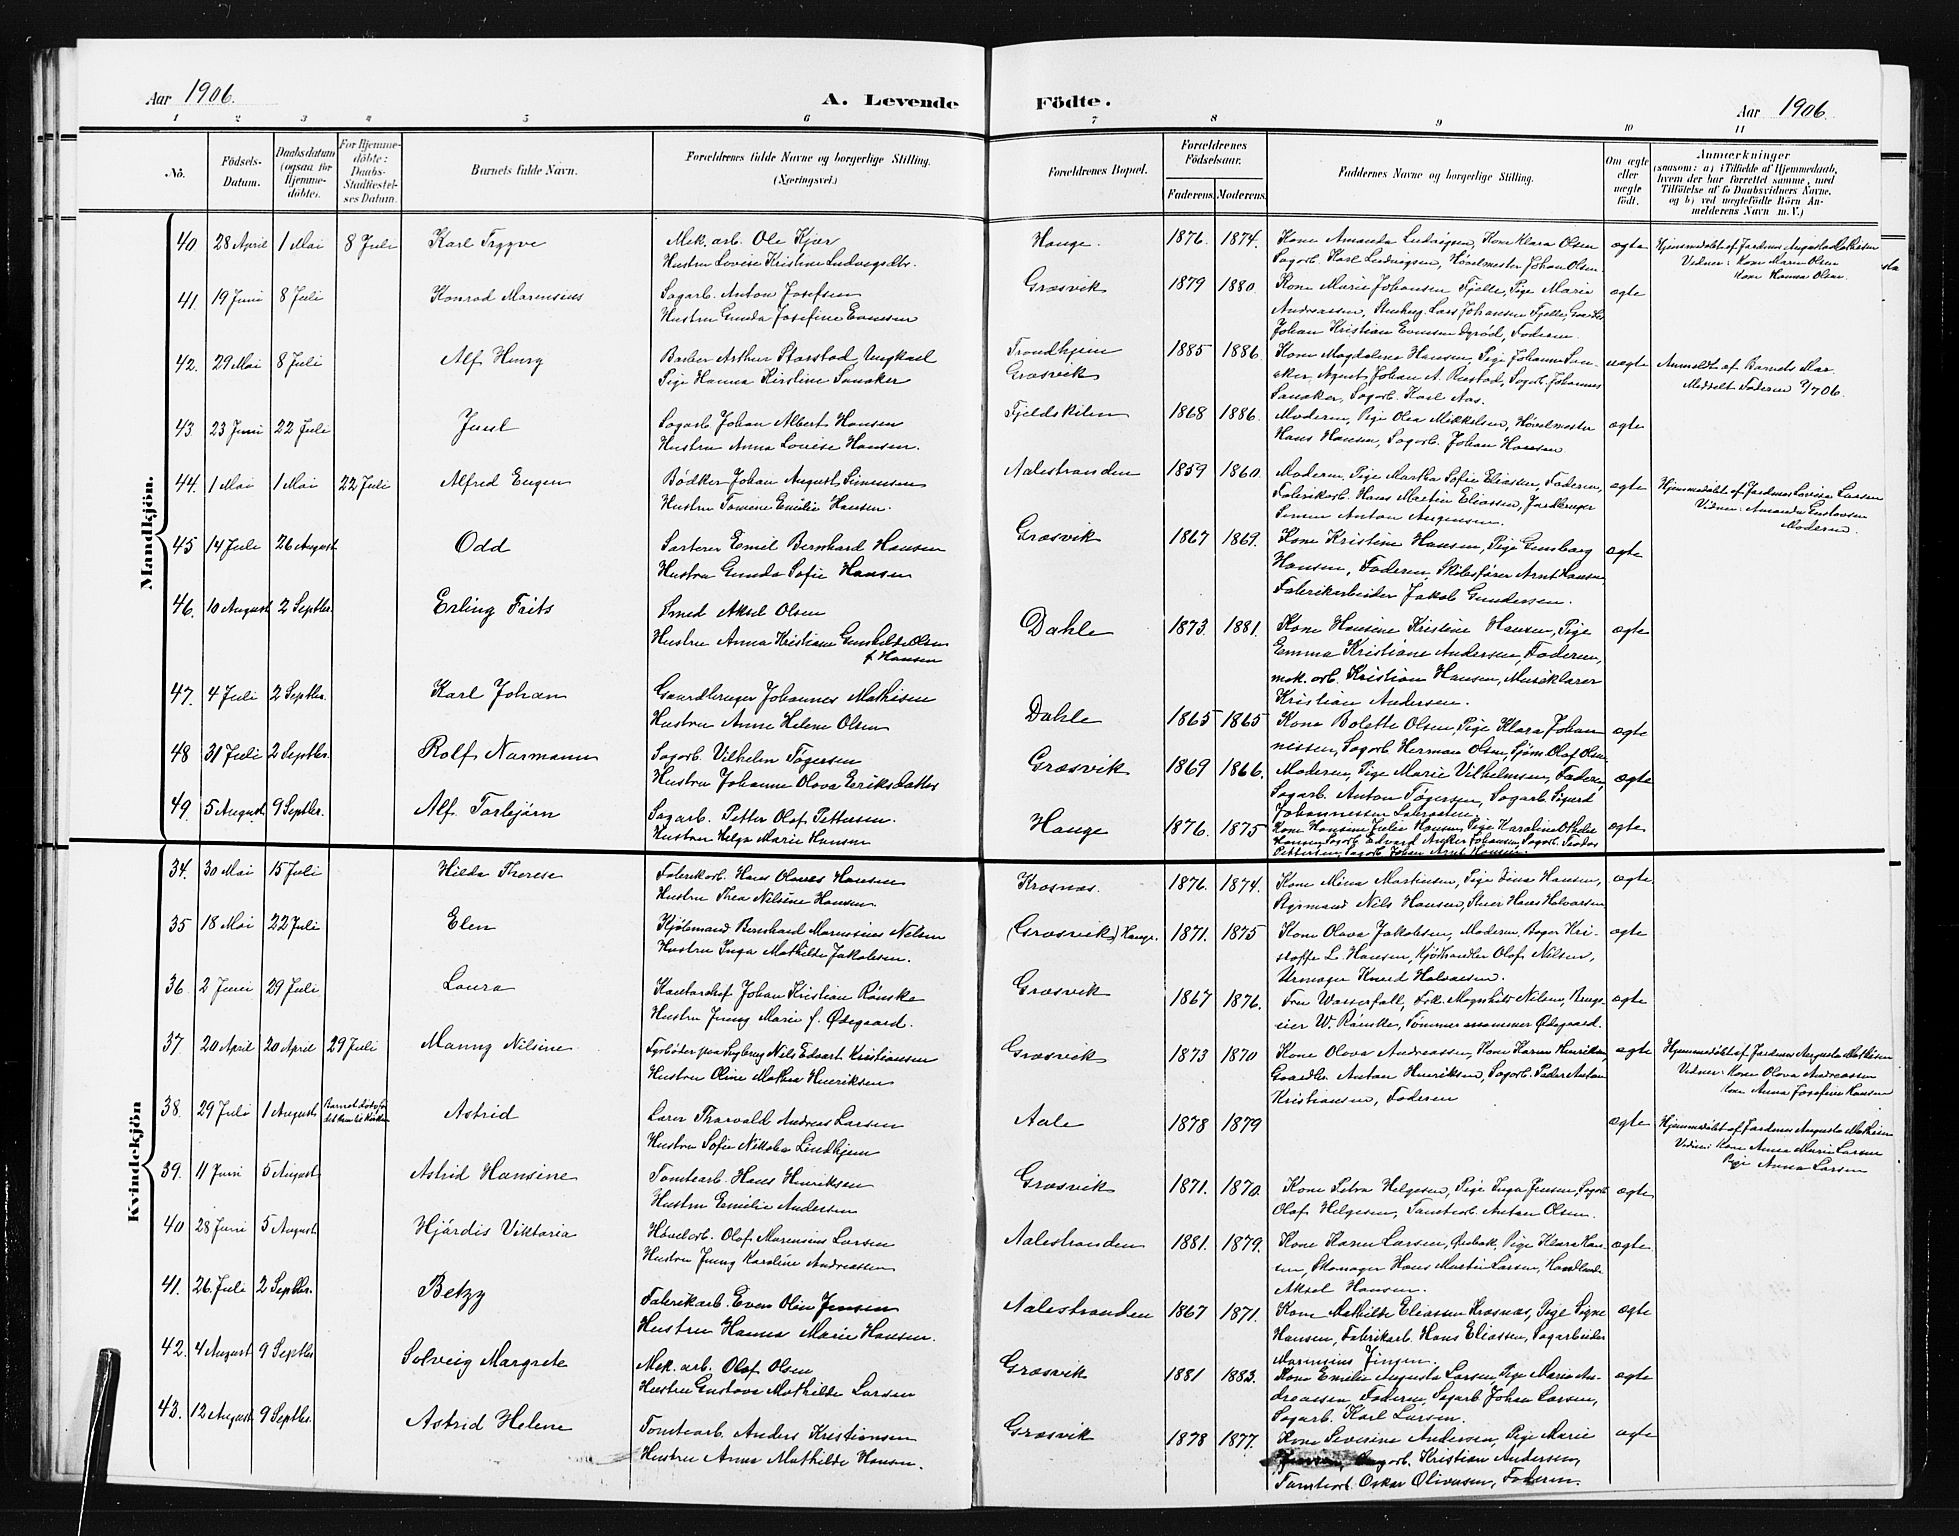 Aar 1906.
A. Levende Födte.
Aar 1906.
1 2 3 4 5 6 7 8 9 10 11
No.
Födsels-Datum.
Daabsdatum (ogsaa for Hjemmedöbte).
For Hjemmedöbte: Daabs-Stadfæstelses Datum.
Barnets fulde Navn.
Forældrenes fulde Navne og borgerlige Stilling. (Næringsvei.)
Forældrenes Bopæl.
Forældrenes Födselsaar.
Faderens. Moderens.
Faddernes Navne og borgerlige Stilling.
Om ægte eller uægte født.
Anmærkninger
(saasom: a) i Tilfælde af Hjemmedaab, hvem der har forrettet samme, med Tilföielse af to Daabsvidners Navne, og b) ved uægtefödte Börn Anmelderens Navn m. V.)
Mandkjön.
40 28 April 1 Mai 8 Juli Karl Tryggve Mek. arb. Ole Kjær Hange. 1876. 1874. Kone Amanda Ludvigsen, Kone Klara Olsen ægte Hjemmedøbt af Jordmor Augusta Mathisen
Hustru Lovise Kristine Ludvigsdtr. Sagarb. Karl Ludvigsen, Høvelmester Johan Olsen Vidner: Kone Maren Olsen
Kone Hanna Olsen.
41. 19 Juni 8 Juli Konrad Marensius Sagarb. Anton Josefsen Græsvik 1879 1880. Kone Marie Johansen Fjelle, Pige Marie ægte
Hustru Gunda Josefine Evensen Andreassen, Lars Johansen Fjelle,
Johan Kristian Evensen Dyrød, Faderen.
42. 29 Mai 8 Juli Alf Henry Barber Arthur Starstad Ungkarl Trondhjem 1885 1886. Kone Magdalene Hansen, Pige Johanne San- uægte Anmeldt af Barnets Mor.
Pige Hanna Kirstine Sanaker Græsvik aker, Agent Johan A. Røstad, Sagarb. Johannes Meddelt Faderen 9/7 06.
Sanaker, Sagarb. Karl Aas.
43. 23 Juni 22 Juli Juul Sagarb. Johan Albert Hansen Fjeldskilen 1868 1886. Moderen, Pige Olea Mikkelsen, Høvelmester ægte
Hustru Anna Lovise Hansen. Hans Hansen, Sagarb. Johan Hansen
44. 1 Mai 1 Mai 22 Juli Alfred Eugen Bødker Johan August Simensen Aalestranden 1859 1860. Moderen, Pige Martha Sofie Eliassen, Faderen, ægte Hjemmedøbt af Jordmor Lovise Larsen
Hustru Tomine Emilie Hansen. Fabrikarb. Hans Martin Eliassen, Jordbruger Vidner: Amanda Gustavsen
Simen Anton Augensen. Moderen.
45 14 Juli 26 August Odd Sorterer Emil Bernhard Hansen Græsvik 1867 1869. Kone Kristine Hansen, Pige Gunborg ægte
Hustru Gunda Sofie Hansen Hansen, Faderen, Skibsfører Arnt Hansen
Fabrikarbeider Jakob Gundersen.
46. 10 August 2 Septbr. Erling Frits Smed Aksel Olsen Dahle 1873 1881. Kone Hansine Kristine Hansen, Pige ægte
Hustru Anna Kristiane Gunhild Olsen Emma Kristiane Andersen, Faderen,
f. Hansen mek. arb. Kristian Hansen, Musiklærer
Kristian Andersen.
47. 4 Juli 2 Septbr. Karl Johan Gaardbruger Johannes Mathisen Dahle 1865 1865 Kone Bolette Olsen, Pige Klara Johan ægte
Hustru Anne Helene Olsen nissen, Sagarb. Herman Olsen, Sjøm. Olaf Olsen
48 31 Juli 2 Septbr. Rolf Narmann Sagarb. Vilhelm Tøgersen Græsvik 1869 1866. Moderen, Pige Marie Vilhelmsen, Faderen, ægte
Hustru Johanne Olava Eriksdatter Sagarb. Anton Tøgersen, Sagarb. Sigurd
Johannessen
49. 5 August 9 Septbr. Alf Torbjørn Sagarb. Petter Olaf Pettersen. Hange 1876. 1875 Kone Hansine Julie Hansen, Pige Karoline ægte
Hustru Helga Marie Hansen Hansen, Sagarb. Edvard Johansen, Sagarb. Teodor
Pettersen, Sagarb. Johan Arnt Hansen.
Kvindekjön
34. 30 Mai 15 Juli Hilda Therese Fabrikarb. Hans Olaves Hansen Krosnæs. 1876. 1874. Kone Mina Martinsen, Pige Lina Hansen, ægte.
Hustru Thea Nilsine Hansen. Styrmand Nils Hansen, Hans Halvorsen
35 18 Mai 22 Juli Elen Kjølemand Bernhard Marensius Nilsen (Græsvik) Hange. 1871. 1875 Kone Olava Jakobsen, Moderen, Bager Kri- ægte
Hustru Inga Mathilde Jakobsen. stoffe L. Hansen, Kjødhandler Olaf Nilsen,
Urmager Knud Halvorsen.
36. 2 Juni 29 Juli Laura Kontorchef Johan Kristian Rønske Græsvik 1867 1876. Fru Wasserfall, Frk. Magnhild Nilsen, Brugs- ægte
Hustru Jenny Marie f. Ødegaard. eier W. Rønske, Tømmermann Ødegaard.
37. 20 April 20 April 29 Juli Manny Nilsine Fyrbøder paa Sagbrug Nils Edvart Kristiansen Græsvik 1873 1870 Kone Olava Andreassen, Kone Karen Henriksen, ægte Hjemmedøbt af Jordmor Augusta Mathisen
Hustru Oline Mathea Henriksen Gaardbr. Anton Henriksen, Sagarb. Peder Anton Vidner: Kone Olava Andreassen
Kristiansen, Faderen Kone Anna Josefine Hansen
38. 29 Juli 1 August Barnet døde før det kom til Kirken Astrid Lærer Thorvald Andreas Larsen Aale 1878 1879 ægte Hjemmedøbt af Jordmor Augusta Mathisen
Hustru Sofie Nikolea Lindhjem Vidner: Kone Anna Marie Larsen
Pige Anna Larsen
39. 11 Juni 5 August Astrid Hansine Tomtearb. Hans Henriksen Græsvik 1871. 1870. Kone Petra Helgesen, Pige Inga Jensen, Sagarb. ægte
Hustru Emilie Andersen Olaf Helgesen, Tomtearb. Anton Olsen.
40 28 Juni 5 August Hjördis Viktoria Høvelarb. Olaf Marensius Larsen Aalestranden 1881. 1879. Kone Karen Larsen, Ørebak, Pige Klara Han- ægte
Hustru Jenny Karoline Andreassen sen, Skomager Hans Martin Larsen, Handlende
Aksel Hansen.
41. 26 Juli 2 Septbr. Betzy Fabrikarb. Even Olin Jensen Aalestranden 1867 1871. Kone Mathilde Eliassen Krosnæs, Pige Signe ægte
Hustru Hanna Marie Hansen. Hansen, Fabrikarb. Hans Eliassen, Sagarbeider
Marensius Jensen.
42. 4 August 9 Septbr Solveig Margrete Mek. arb. Olaf Olsen Græsvik 1881 1883. Kone Emilie Augusta Larsen, Pige Marie An- ægte
Hustru Gustava Mathilde Larsen dreassen, Faderen, Sagarb. Johan Larsen,
Sagarb. Karl Larsen.
43. 12 August 9 Septbr. Astrid Helene Tomtearb. Anders Kristiansen Græsvik 1878 1877. Kone Severine Andersen, Pige Marie ægte
Hustru Anna Mathilde Hansen. Sagarb. Kristian Andersen,
Tomtearb. Oskar Olivesen, Faderen.